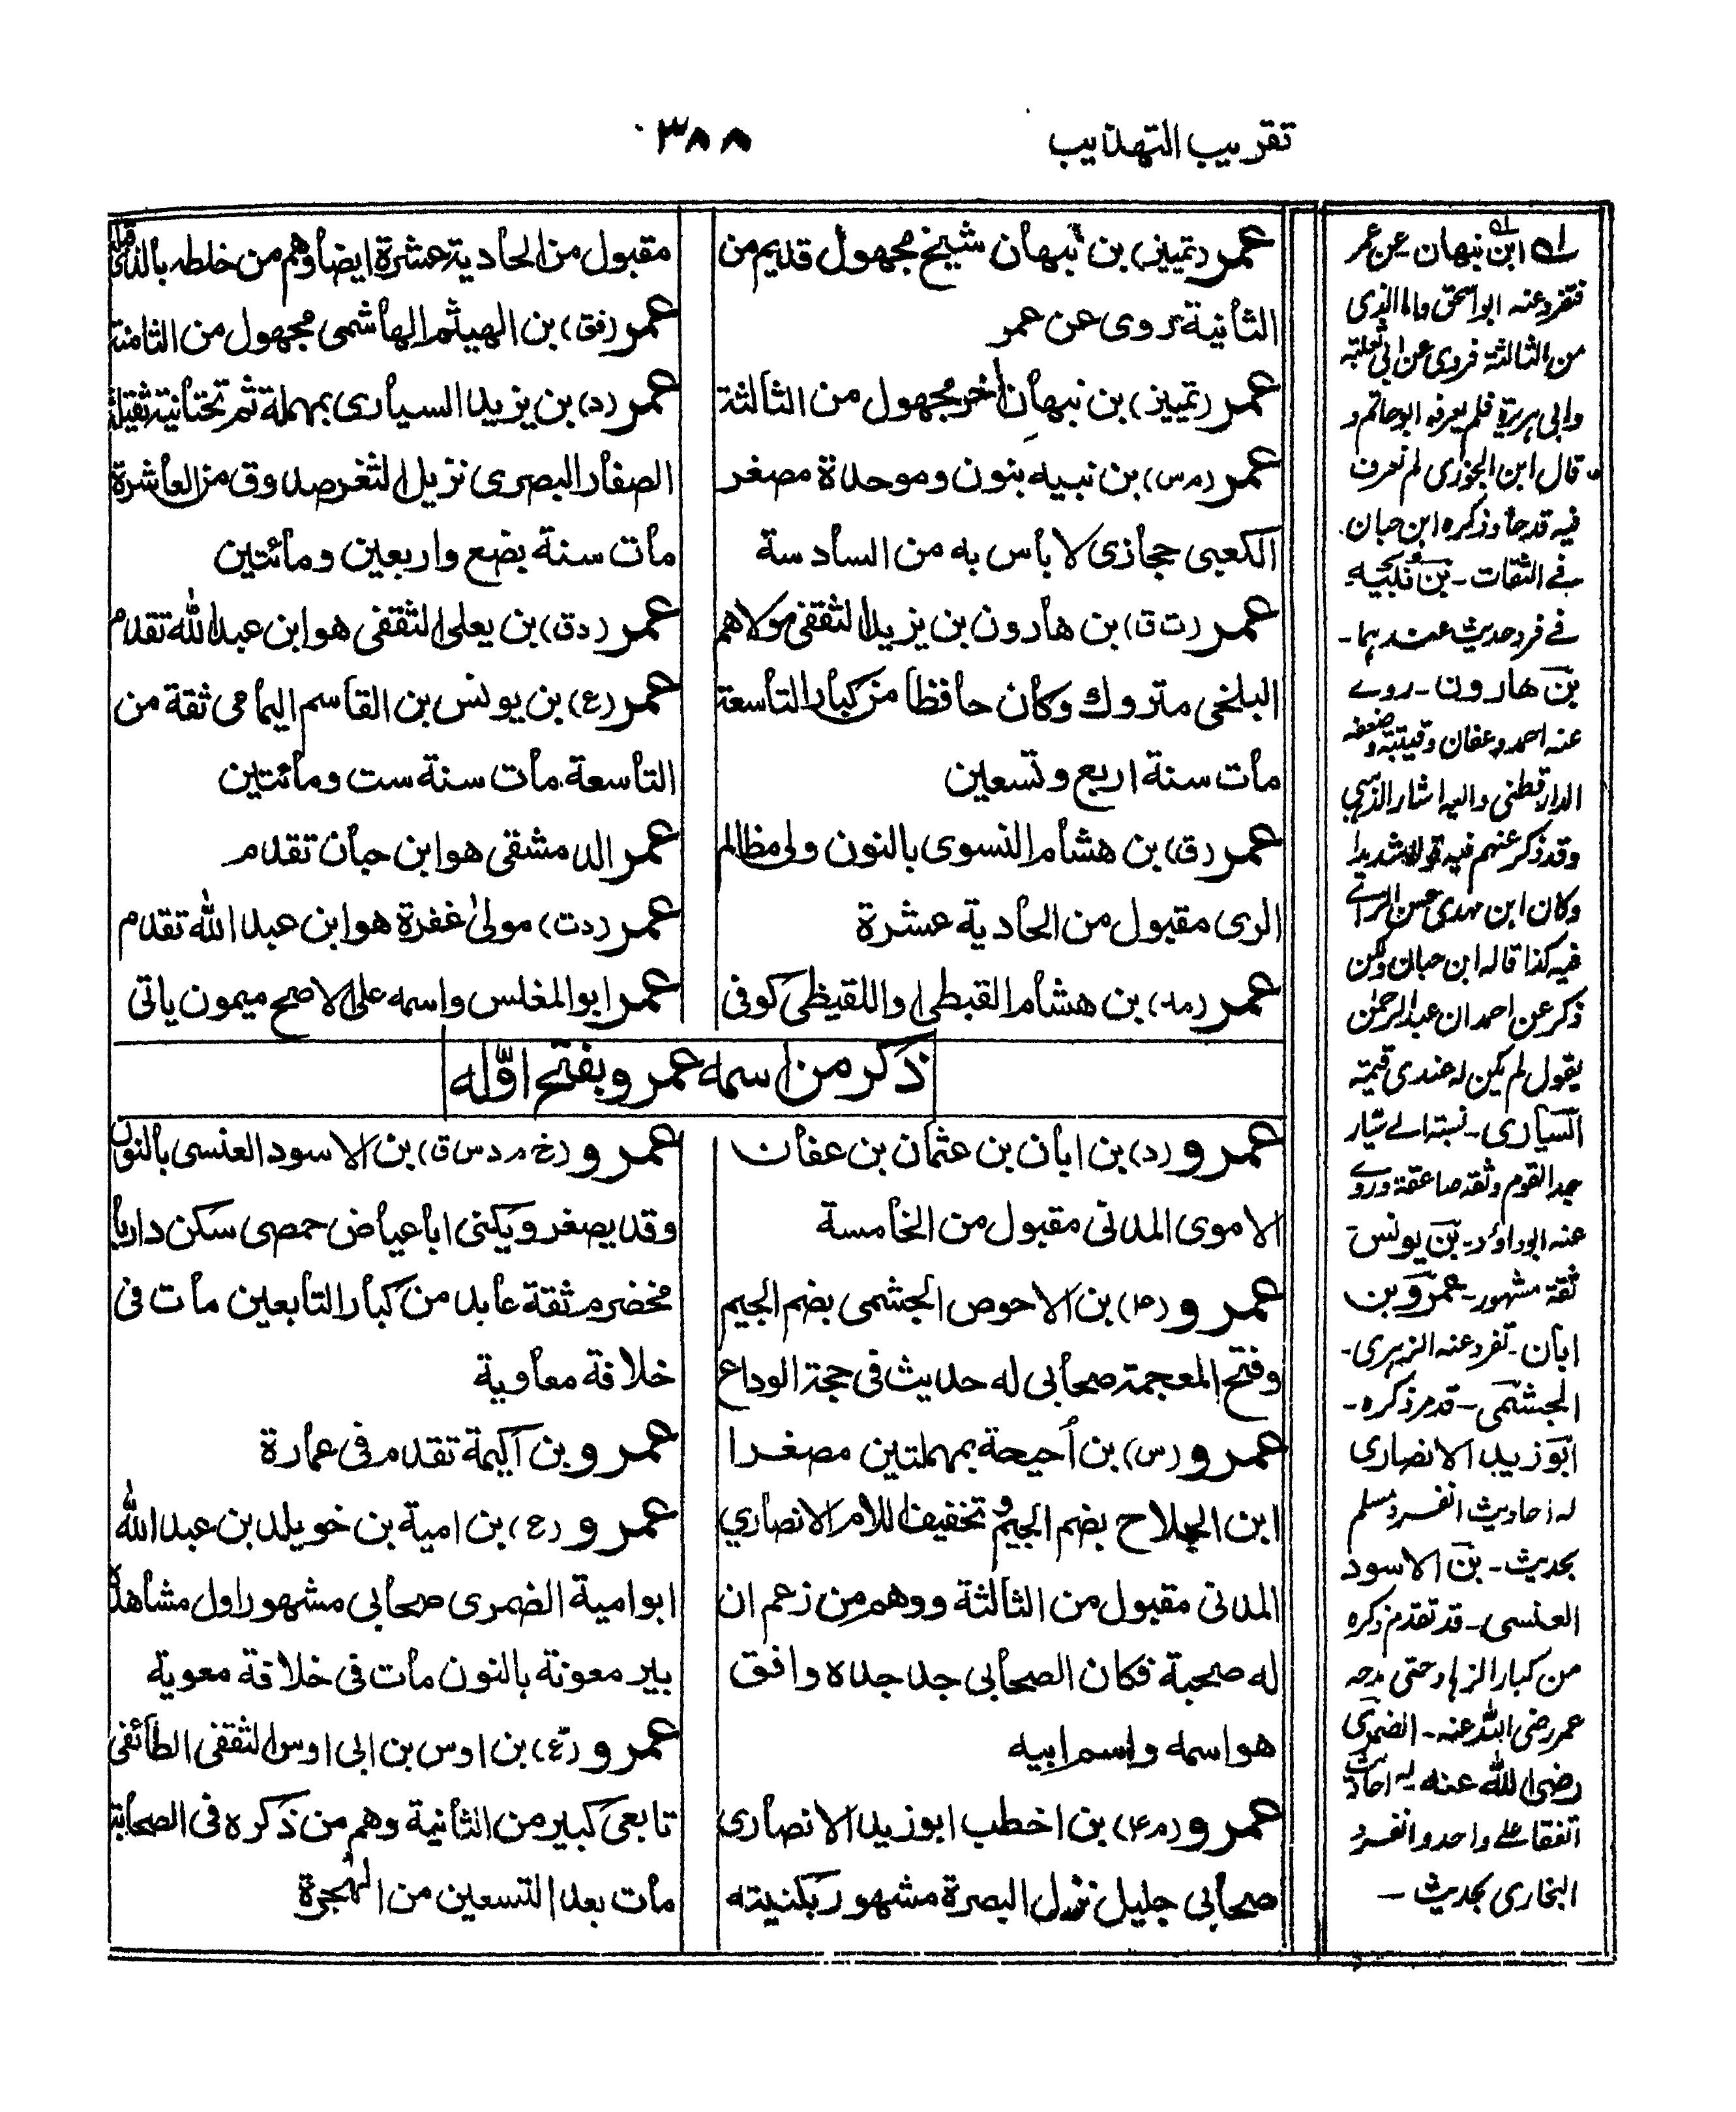 تقريب التهذيب
٣٨٨
عمر (تمييز) بن نبهان شيخ مجهول قديم من
الثانية روى عن عمر
عمر (تمييز) بن نبهان اخر مجهول من الثالثة
عمر (م س) بن نبيه بنون وموحدة مصغر
الكعبى حجازى لا بأس به من السادسة
عمر (ت ق) بن هارون بن يزيد الثقفى مولاهم
البلخى متروك وكان حافظا من كبار التاسعة
مات سنة اربع وتسعين
عمر (ق) بن هشام النسوى بالنون ولى مظالم
الرى مقبول من الحادية عشرة
عمر (مد) بن هشام القبطى او اللقيظى كوفى
مقبول من الحادية عشرة ايضا وهم من خلطه بالذى قبله
عمر (فق) بن الهيثم الهاشمى مجهول من الثامنة
عمر (د) بن يزيد السيارى بمهملة ثم تحتانية ثقيلة
الصفار البصرى نزيل الثغر صدوق من العاشرة
مات سنة بضع واربعين ومائتين
عمر (د ق) بن يعلى الثقفى هو ابن عبد الله تقدم
عمر (ع) بن يونس بن القاسم اليمامى ثقة من
التاسعة مات سنة ست ومائتين
عمر الدمشقى هو ابن حبان تقدم
عمر (د ت) مولىٰ غفرة هو ابن عبد الله تقدم
عمر ابو المغلس واسمه على الاصح ميمون ياتى
ذكر من اسمه عمرو بفتح اوّله
عمرو (د) بن ابان بن عثمان بن عفان
الاموى المدنى مقبول من الخامسة
عمرو (٤) بن الاحوص الجشمى بضم الجيم
وفتح المعجمة صحابى له حديث فى حجة الوداع
عمرو (س) بن أحيحة بمهملتين مصغرا
ابن الجلاح بضم الجيم وتخفيف اللام الانصاري
المدنى مقبول من الثالثة ووهم من زعم ان
له صحبة فكان الصحابى جد جده وافق
هو اسمه واسم ابيه
عمرو (م ٤) بن اخطب ابو زيد الانصارى
صحابى جليل نزل البصرة مشهور بكنيته
عمرو (خ م د س ق) بن الاسود العنسى بالنون
وقد يصغر ويكنى ابا عياض حمصى سكن داريا
مخضرم ثقة عابد من كبار التابعين مات فى
خلافة معاوية
عمرو بن اكيمة تقدم فى عمارة
عمرو (ع) بن امية بن خويلد بن عبد الله
ابو امية الضمرى صحابى مشهور اول مشاهده
بير معونة بالنون مات فى خلافة معوية
عمرو (ع) بن اوس بن ابى اوس الثقفى الطائفى
تابعى كبير من الثانية وهم من ذكره فى الصحابة
مات بعد التسعين من الهجرة
له ابن نبهان عن عمر
فتفرد عنه ابو اسحق واما الذى
من الثالثة فروى عن ابى ثعلبة
وابى هريرة فلم يعرفه ابو حاتم و
قال ابن الجوزى لم نعرف
فيه قدحا وذكره ابن حبان
فے الثقات - بن نبيه
فے فرد حديث عندهما -
بن هارون - روے
عنه احمد وعفان وقتيبة وضعفه
الدارقطنى واليه اشار الذهبى
وقد ذكر عنهم فيه قولا شديدا
وكان ابن مهدى حسن الرائے
فيه كذا قاله ابن حبان ولكن
ذكر عن احمد ان عبد الرحمٰن
يقول لم يكن له عندى قيمة
السيارى - نسبة الے سيار
جد القوم وثقه صاعقة وروے
عنه ابو داؤد - بن يونس
ثقة مشهور - عمرو بن
ابان - تفرد عنه الزهرى -
الجشمى - قد مر ذكره -
ابو زيد الانصارى
له احاديث انفرد مسلم
بحديث - بن الاسود
العنسى - قد تقدم ذكره
من كبار الزهاد حتى مدحه
عمر رضى الله عنه - الضمرى
رضى الله عنه له احاديث
اتفقا على واحد وانفرد
البخارى بحديث -